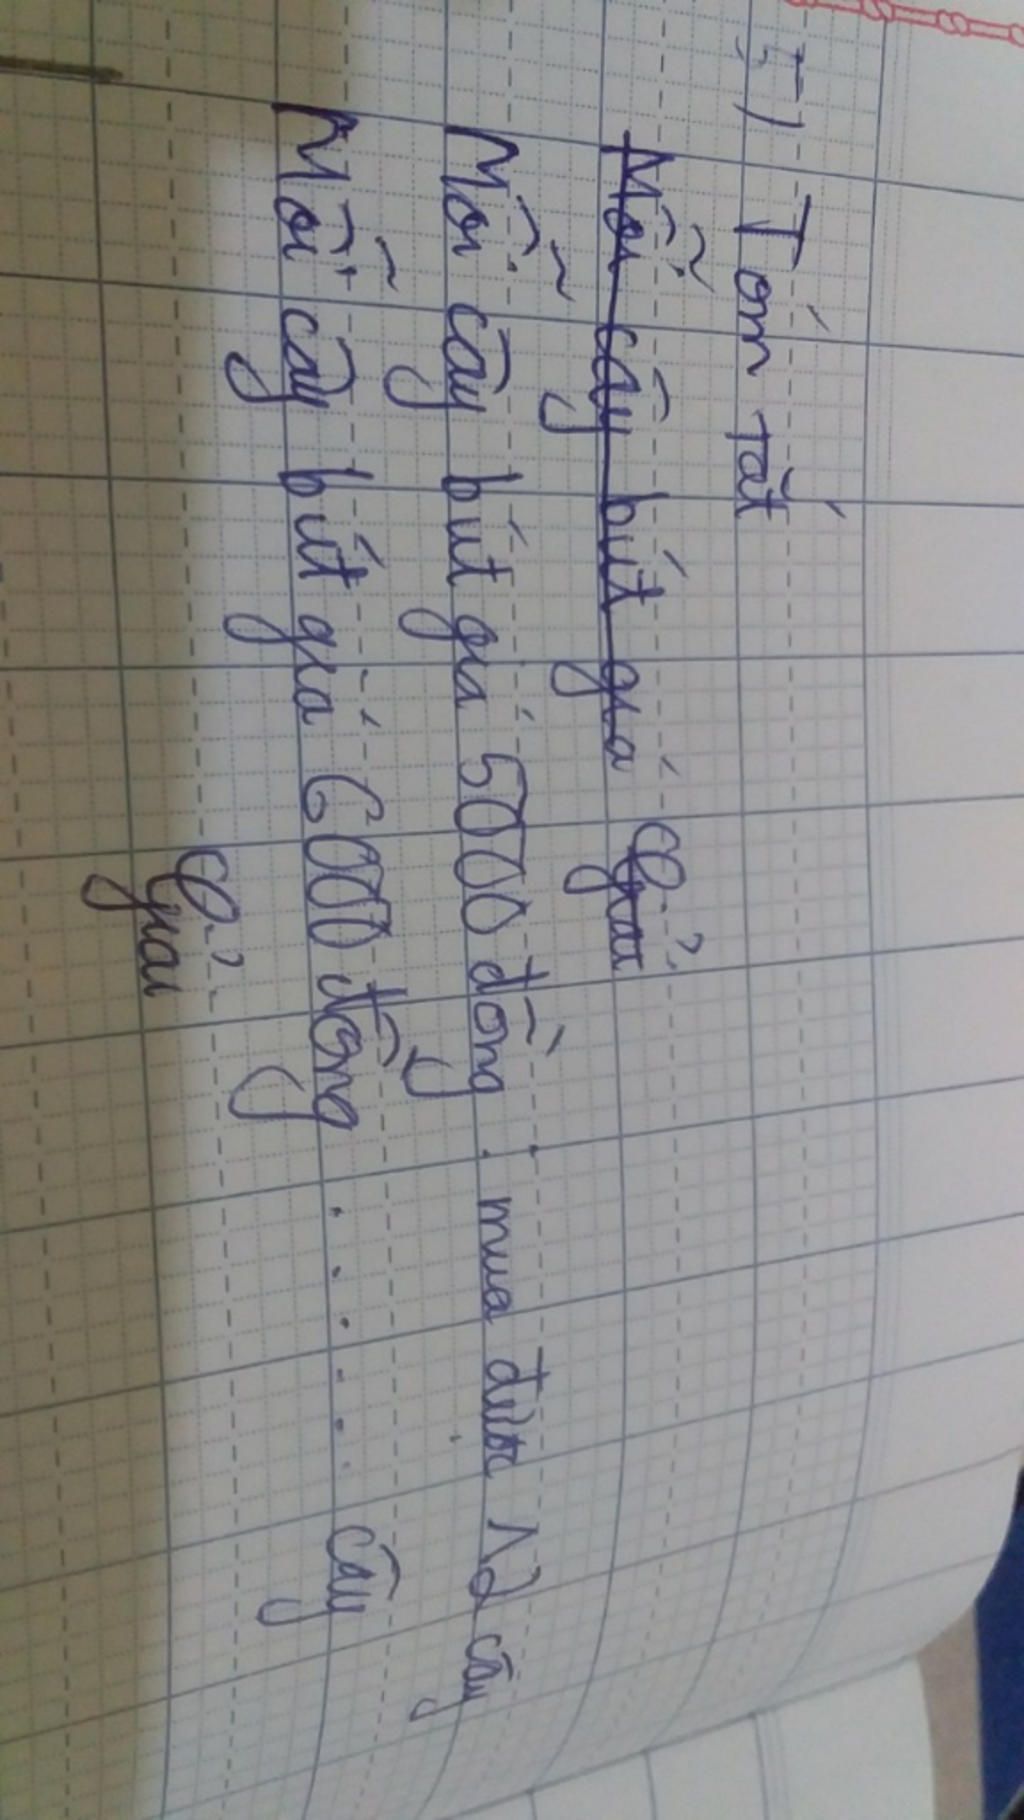 5) Tóm tắt
Mỗi cây bút giá Giải
Mỗi cây bút giá 5000 đồng : mua được 12 cây
Mỗi cây bút giá 6000 đồng ...... cây
Giải